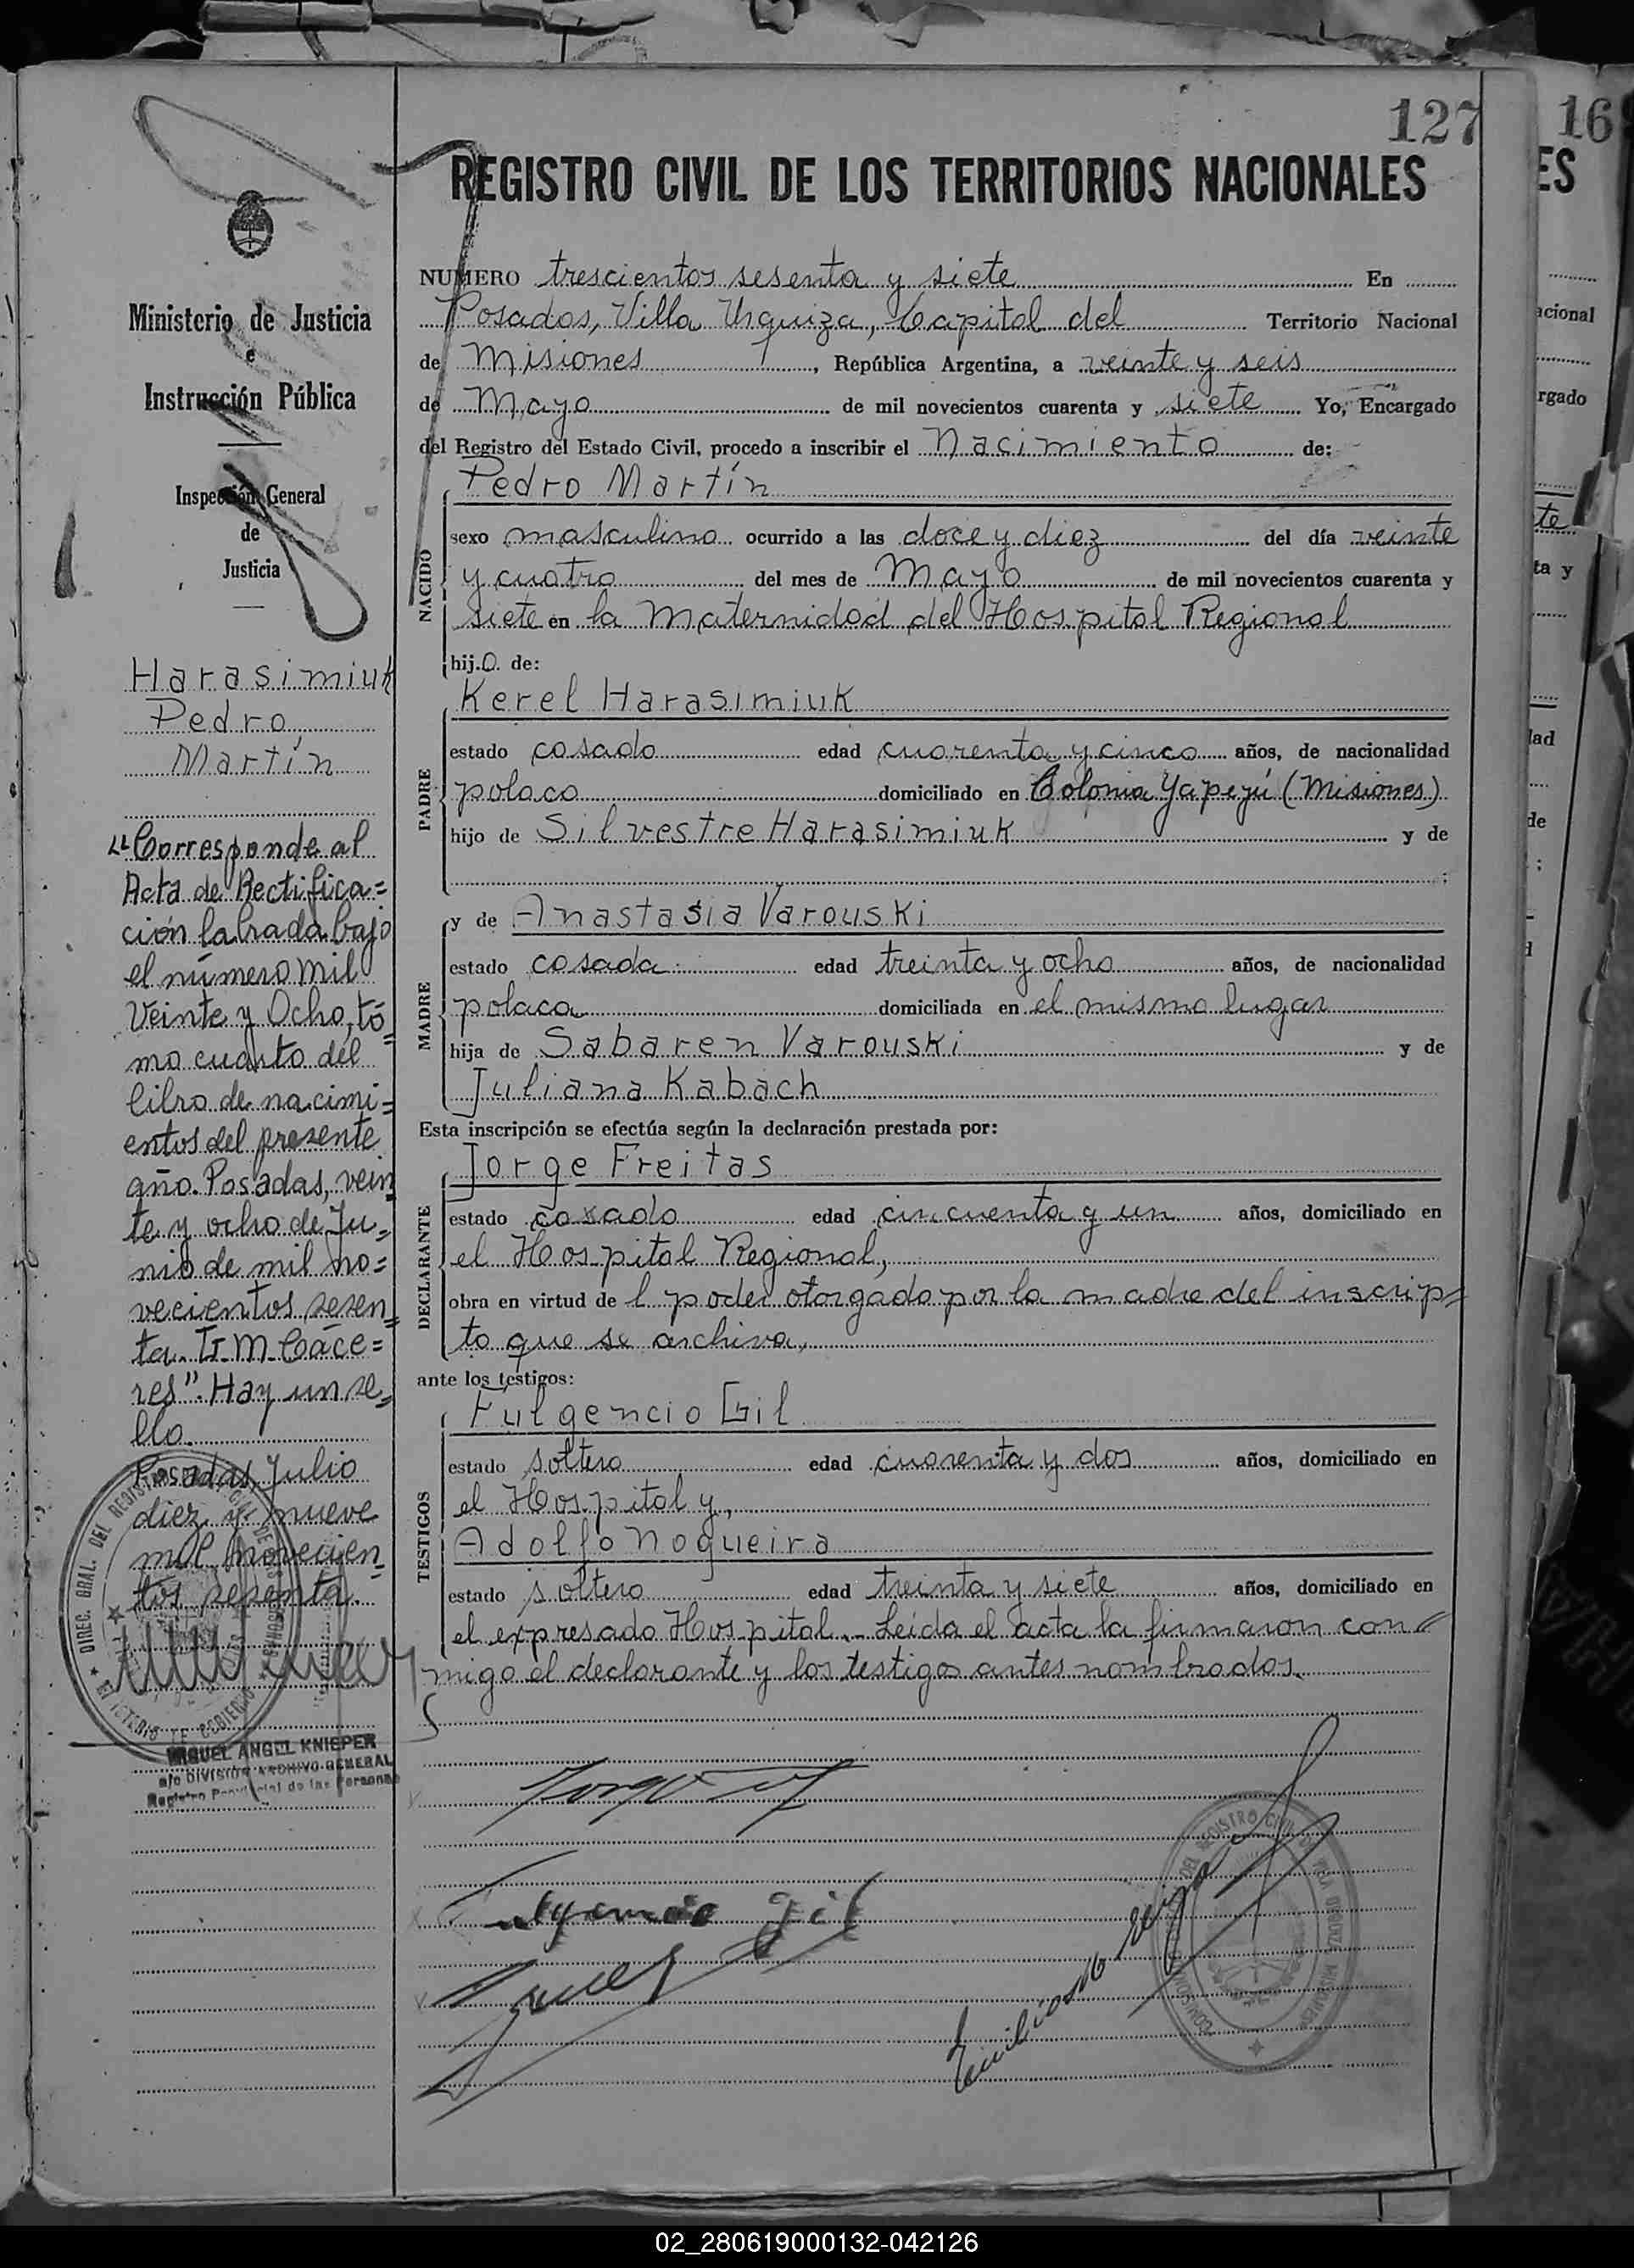 127
16
REGISTRO CIVIL DE LOS TERRITORIOS NACIONALES
ES
Ministerio de Justicia
e
Instrucción Pública
Inspección General
de
Justicia
Harasimiuk
Pedro
Martín
"Corresponde al
Acta de Rectifica=
ción labrada bajo
el número mil
Veinte y Ocho, tó=
mo cuarto del
libro de nacimi=
entos del presente
año. Posadas, vein
te y ocho de Ju=
nio de mil no=
vecientos sesen=
ta. Tr. M. Cáce=
res". Hay un se=
llo.
Posadas, Julio
diez y nueve
mil novecien=
tos sesenta.
DIREC. GRAL. DEL REGISTRO
MIGUEL ANGEL KNIEPER
a/c DIVISIÓN ARCHIVO GENERAL
Registro Provincial de las Personas
NUMERO trescientos sesenta y siete En
Posadas, Villa Urquiza, Capital del Territorio Nacional
de Misiones, República Argentina, a veinte y seis
de Mayo de mil novecientos cuarenta y siete Yo, Encargado
del Registro del Estado Civil, procedo a inscribir el Nacimiento de:
Pedro Martín
NACIDO
sexo masculino ocurrido a las doce y diez del día veinte
y cuatro del mes de Mayo de mil novecientos cuarenta y
siete en la Maternidad del Hospital Regional
hij.o. de:
Kerel Harasimiuk
PADRE
estado casado edad cuarenta y cinco años, de nacionalidad
polaco domiciliado en Colonia Yapeyú (Misiones)
hijo de Silvestre Harasimiuk y de
;
y de Anastasia Varouski
MADRE
estado casada edad treinta y ocho años, de nacionalidad
polaca domiciliada en el mismo lugar
hija de Sabaren Varouski y de
Juliana Kabach
Esta inscripción se efectúa según la declaración prestada por:
Jorge Freitas
DECLARANTE
estado casado edad cincuenta y un años, domiciliado en
el Hospital Regional,
obra en virtud de l poder otorgado por la madre del inscrip=
to que se archiva,
ante los testigos:
Fulgencio Gil
TESTIGOS
estado soltero edad cuarenta y dos años, domiciliado en
el Hospital y,
Adolfo Nogueira
estado soltero edad treinta y siete años, domiciliado en
el expresado Hospital.- Leída el acta la firmaron con=
migo el declarante y los testigos antes nombrados.
Fulgencio Gil
acional
rgado
te
ta y
lad
de
;
02_280619000132-042126